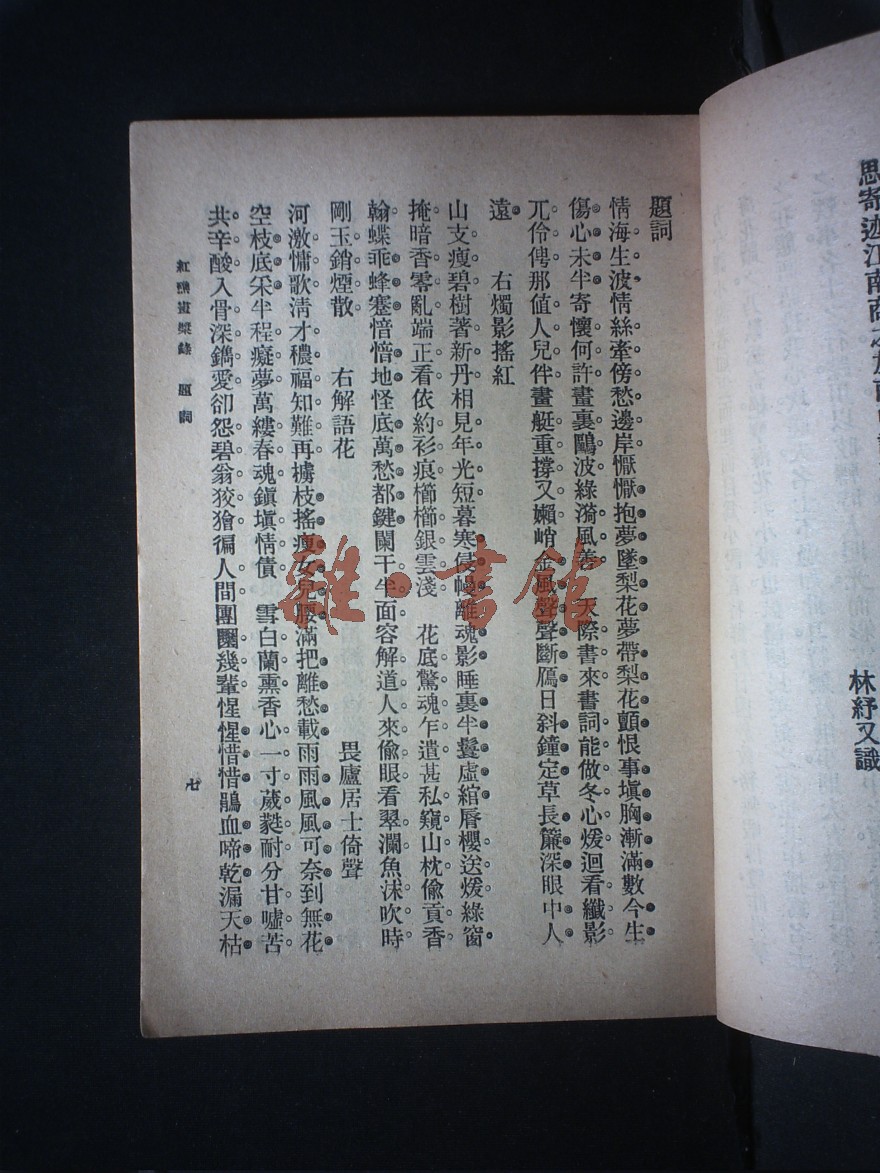 思寄迹江南商
林紓又識
題詞
情海生波情絲牽傍愁邊岸懨懨抱夢墜梨花夢帶梨花顫恨事塡胸漸滿數今生
傷心未半寄懷何許畫裏鷗波綠漪風善 天際書來書詞能做冬心煖迴看纖影
兀伶俜那值人兒伴畫艇重撐又嬾峭金風聲聲斷鴈日斜鐘定草長簾深眼中人
遠 右燭影搖紅
山支瘦碧樹著新丹相見年光短暮寒侵幔離魂影睡裏半鬟虛綰脣櫻送煖綠窗
掩暗香零亂端正看依約衫痕櫛櫛銀雲淺 花底驚魂乍遣甚私窺山枕偸貢香
翰蝶乖蜂蹇愔愔地怪底萬愁都鍵闌干半面容解道人來偸眼看翠瀾魚沫吹時
剛玉銷煙散 右解語花 畏廬居士倚聲
河激慵歌淸才穠福知難再擄枝搖瘦女兒腰滿把離愁載雨雨風風可奈到無花
空枝底釆半程癡夢萬縷春魂鎭塡情債 雪白蘭熏香心一寸葳蕤耐分甘噓苦
共辛酸入骨深鐫愛卻怨碧翁狡獪徧人間團團幾輩惺惺惜惜鵑血啼乾漏天枯
紅礁畫槳錄 題詞
七
雜·書館